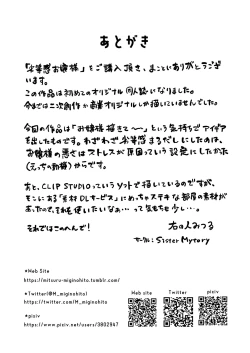 あとがき
「劣等感お嬢様」をご購入頂き、まことにありがとうござ
います。
この作品は初めてのオリジナル同人誌になりました。
今までは二次創作か商業オリジナルしか描いていませんでした。
今回の作品は「お嬢様描きて〜」という気持ちでアイデア
を出したものです。わざわざ劣等感まみれにしたのは、
お嬢様の悪さはストレスが原因っていう設定にしたかた
(えっちの動機)からです。
あと、CLIP STUDIOっていうソフトで描いているのだですが、
そこにある「素材DLサービス」にめっちゃステキな部屋の素材が
あったので、それを使いたいなぁ…って気持ちも少し…。
それではこのへんで!
右の人みつる
サークル:Sister Mystery
●Web Site
https://mitsuru-miginohito.tumblr.com/
●Twitter(@M_miginohito)
https://twitter.com/M_miginohito
●pixiv
https://www.pixiv.net/users/3802947
Web Site
Twitter
pixiv